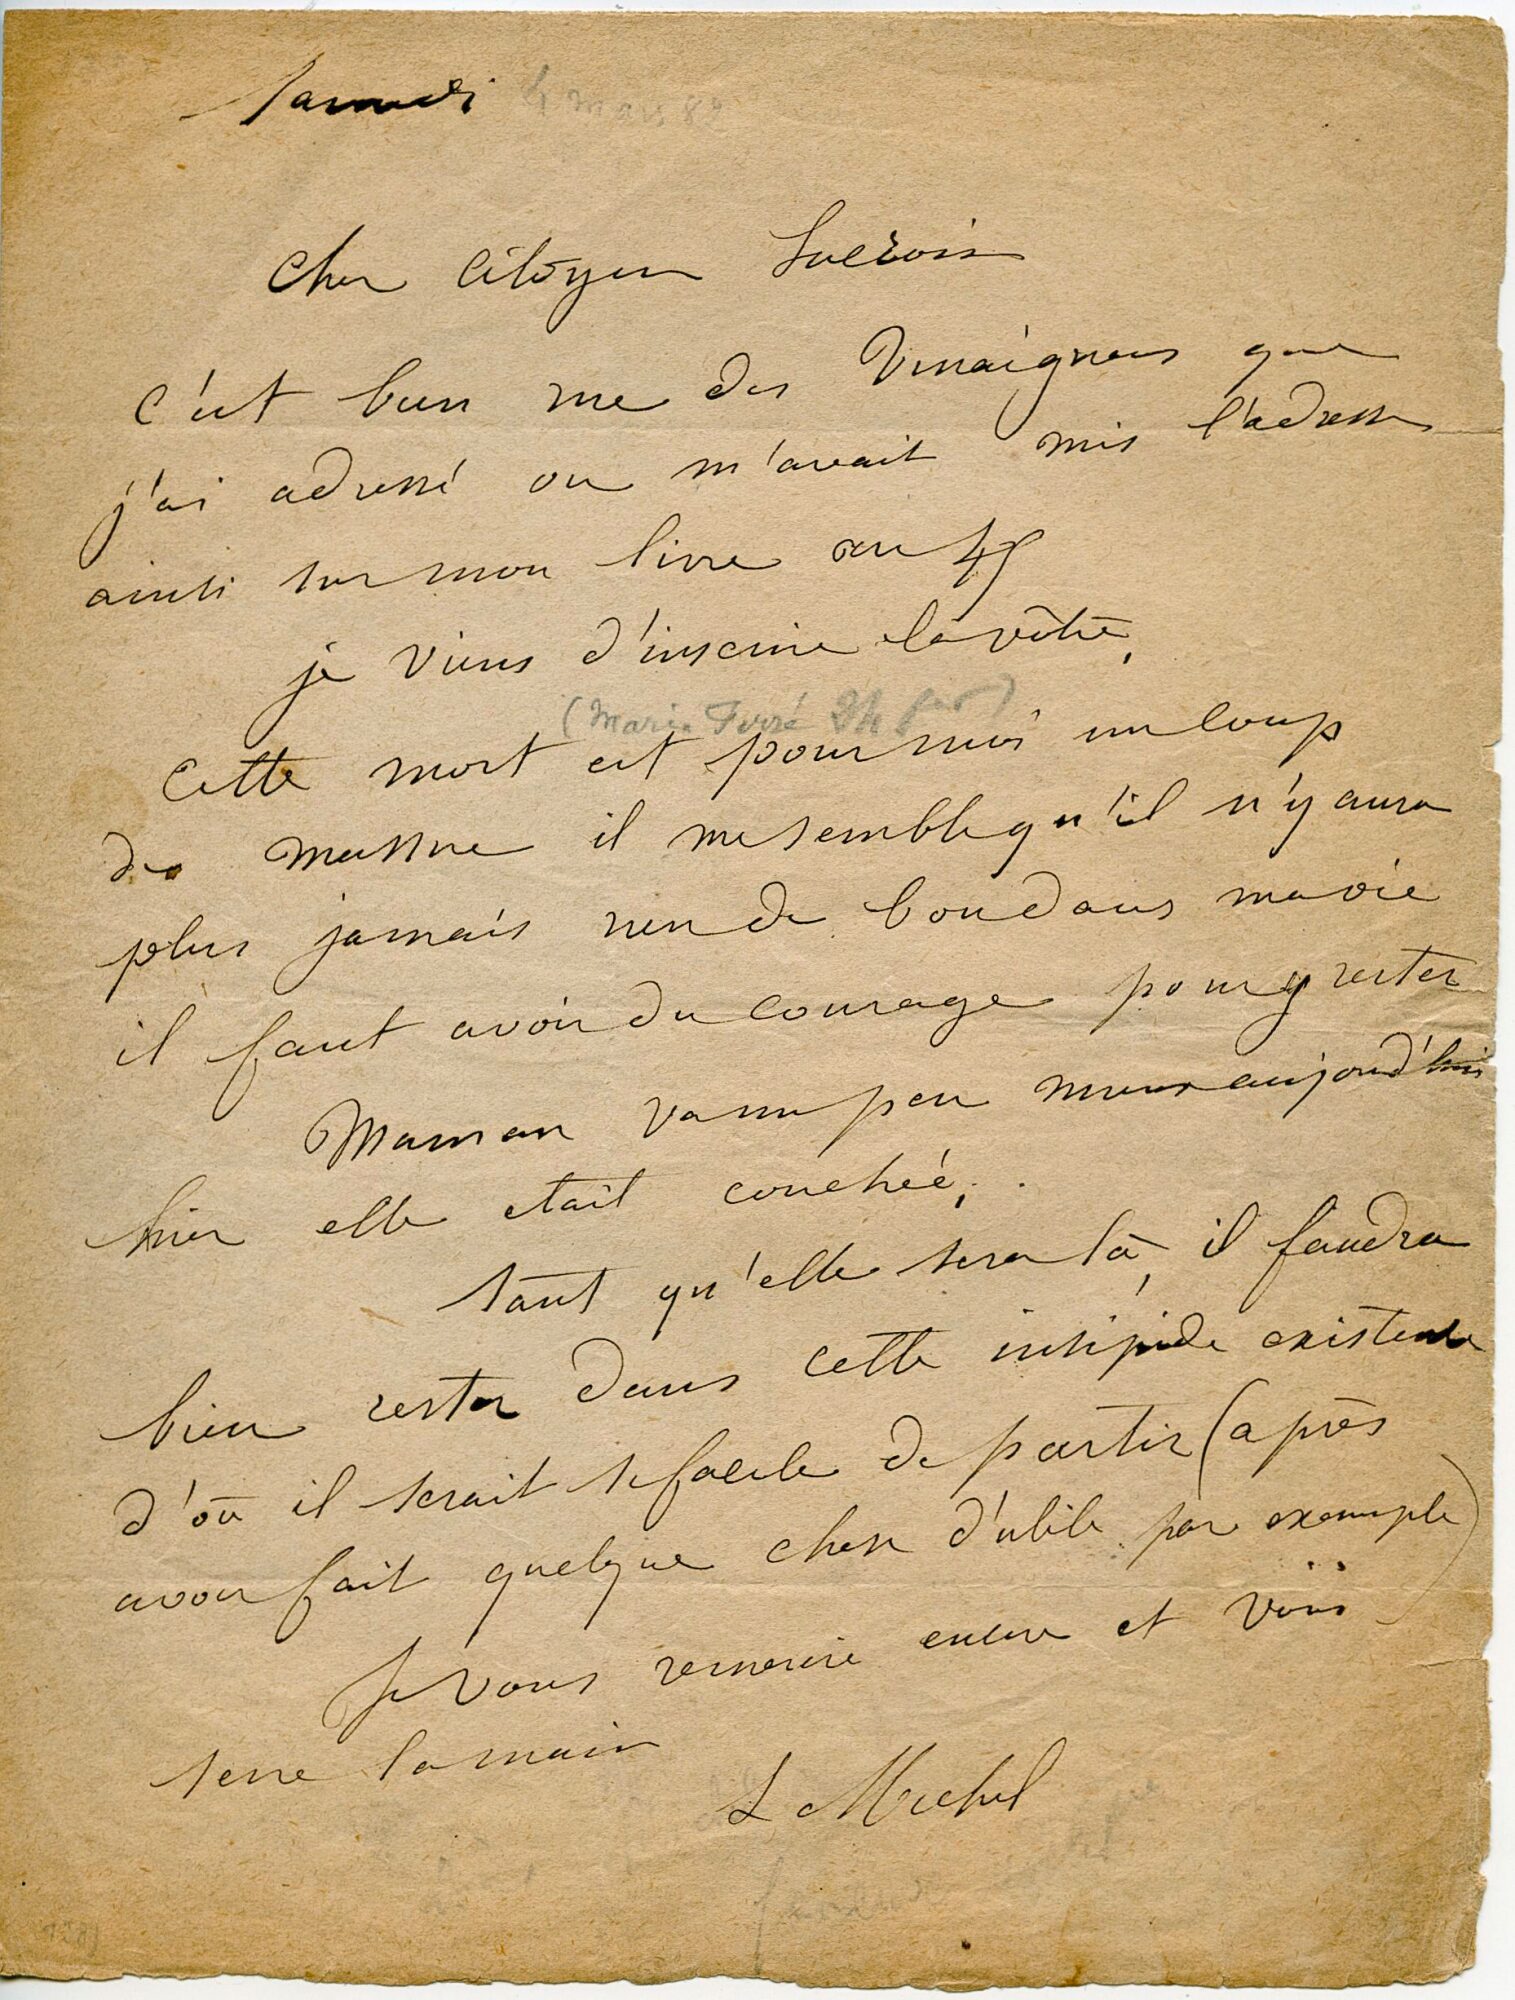 Samedi 4 mars 82
Cher Citoyen
C'est bien rue des Vinaigriers que
j'ai adressé on m'avait mis l'adresse
ainsi sur mon livre au 45
je viens d'inscrire la vôtre,
(Marie Ferré 24 fev)
Cette mort est pour moi un coup
de massue il me semble qu'il n'y aura
plus jamais rien de bon dans ma vie
il faut avoir du courage pour y rester
Maman va un peu mieux aujourd'hui
hier elle était couchée,
tant qu'elle sera là, il faudra
bien rester dans cette insipide existence
d'où il serait si facile de partir (après
avoir fait quelque chose d'utile par exemple)
Je vous remercie encore et vous
serre la main
L Michel